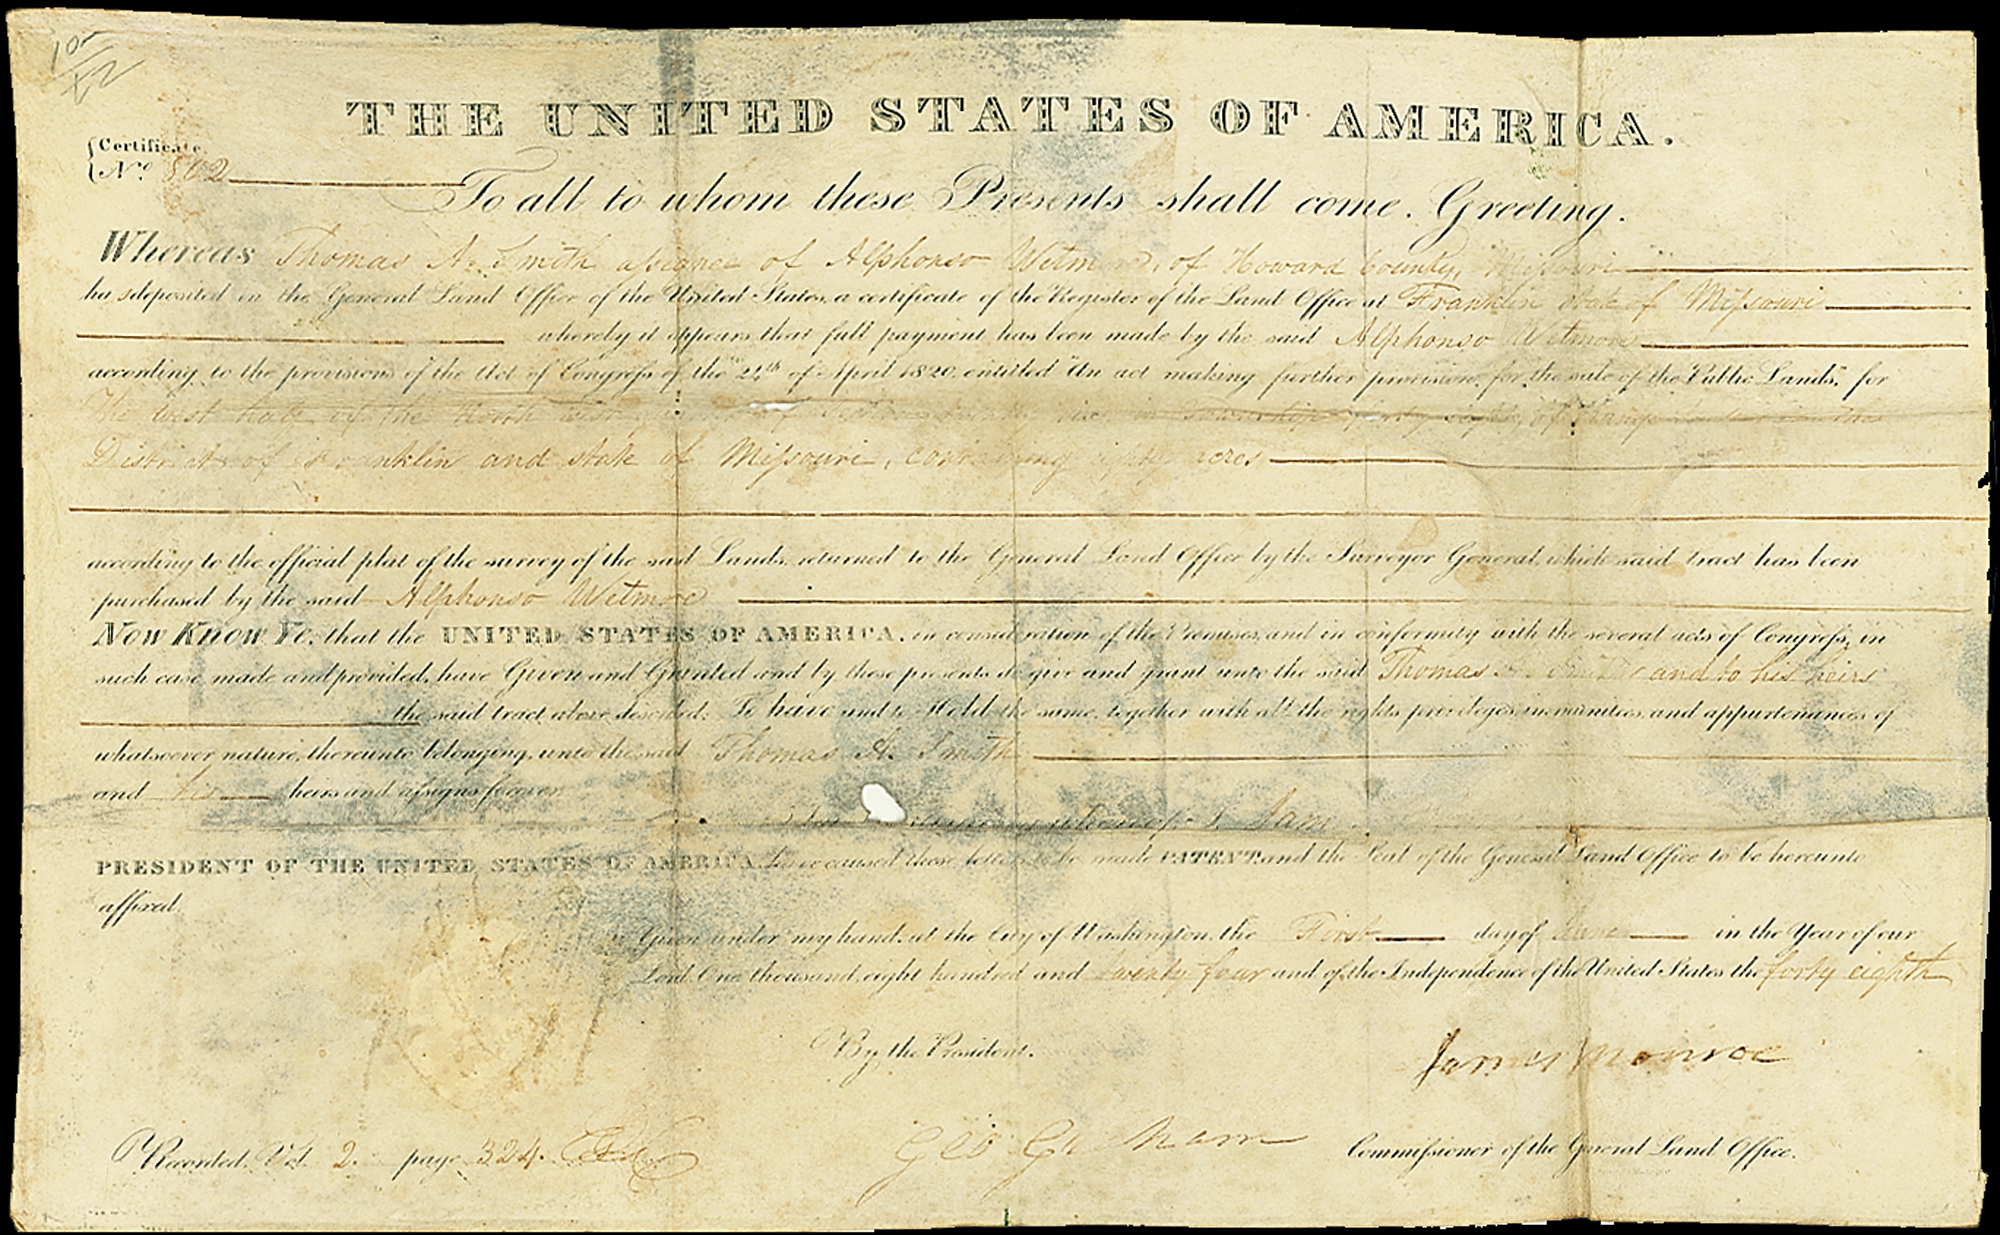 THE UNITED STATES OF AMERICA.
Certificate
No. 502
To all to whom these Presents shall come. Greeting.
Whereas Thomas A. Smith assignee of Alphonso Wetmore, of Howard County, Missouri
has deposited in the General Land Office of the United States, a certificate of the Register of the Land Office at Franklin State of Missouri
whereby it appears that full payment has been made by the said Alphonso Wetmore
according to the provisions of the Act of Congress of the 24th of April 1820, entitled "An act making further provision for the sale of the Public Lands," for
The west half of the North
District of Franklin and state of Missouri, containing eighty acres
according to the official plat of the survey of the said Lands, returned to the General Land Office by the Surveyor General, which said tract has been
purchased by the said Alphonso Wetmore
Now Know Ye, that the UNITED STATES OF AMERICA, in consideration of the Premises, and in conformity with the several acts of Congress, in
such case made and provided, have Given and Granted and by these presents do give and grant unto the said Thomas A. Smith and to his heirs
the said tract above described: To have and to Hold the same, together with all the rights, privileges, immunities, and appurtenances of
whatsoever nature, thereunto belonging, unto the said Thomas A. Smith
and his heirs and assigns forever.
PRESIDENT OF THE UNITED STATES OF AMERICA, have caused these letters to be made PATENT, and the Seal of the General Land Office to be hereunto
affixed.
Given under my hand, at the City of Washington, the First day of June in the Year of our
Lord One thousand eight hundred and twenty four and of the Independence of the United States the forty eighth
By the President.
James Monroe
Geo. Graham Commissioner of the General Land Office.
Recorded, Vol. 2. page 324.